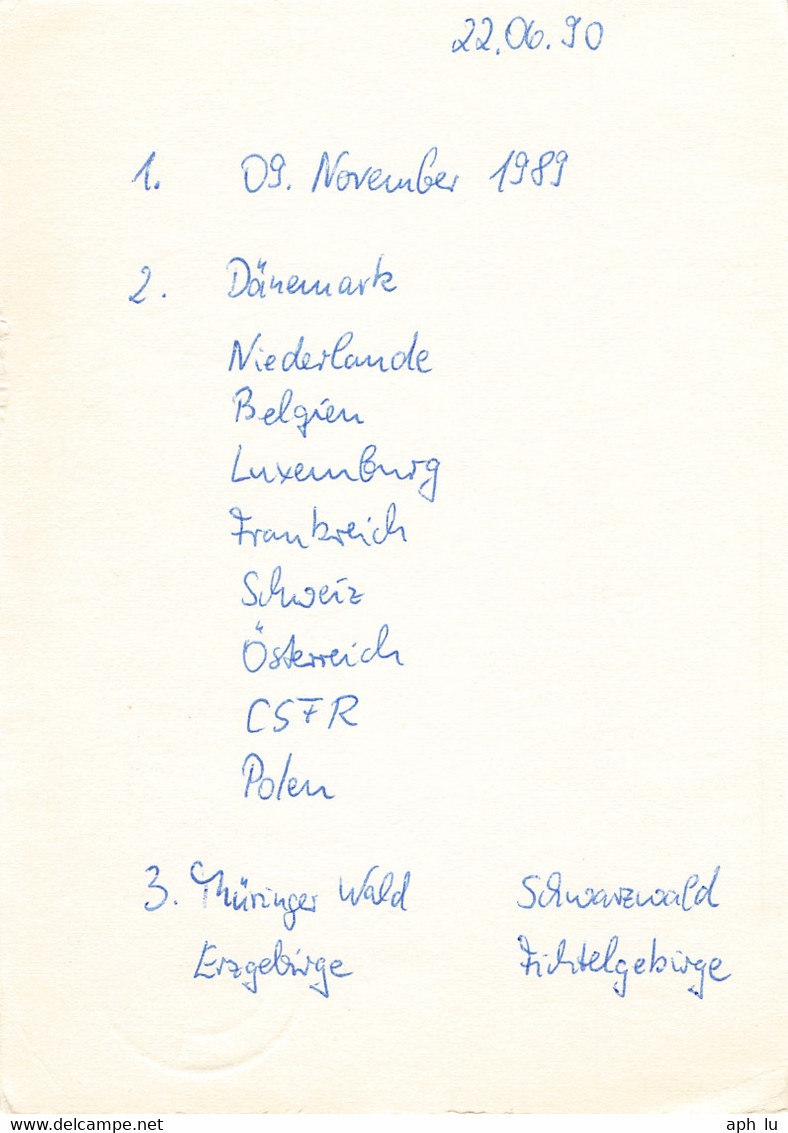 22.06.90
1. 09. November 1989
2. Dänemark
Niederlande
Belgien
Luxemburg
Frankreich
Schweiz
Österreich
CSFR
Polen
3. Thüringer Wald Schwarzwald
Erzgebirge Fichtelgebirge
www.delcampe.net aph lu